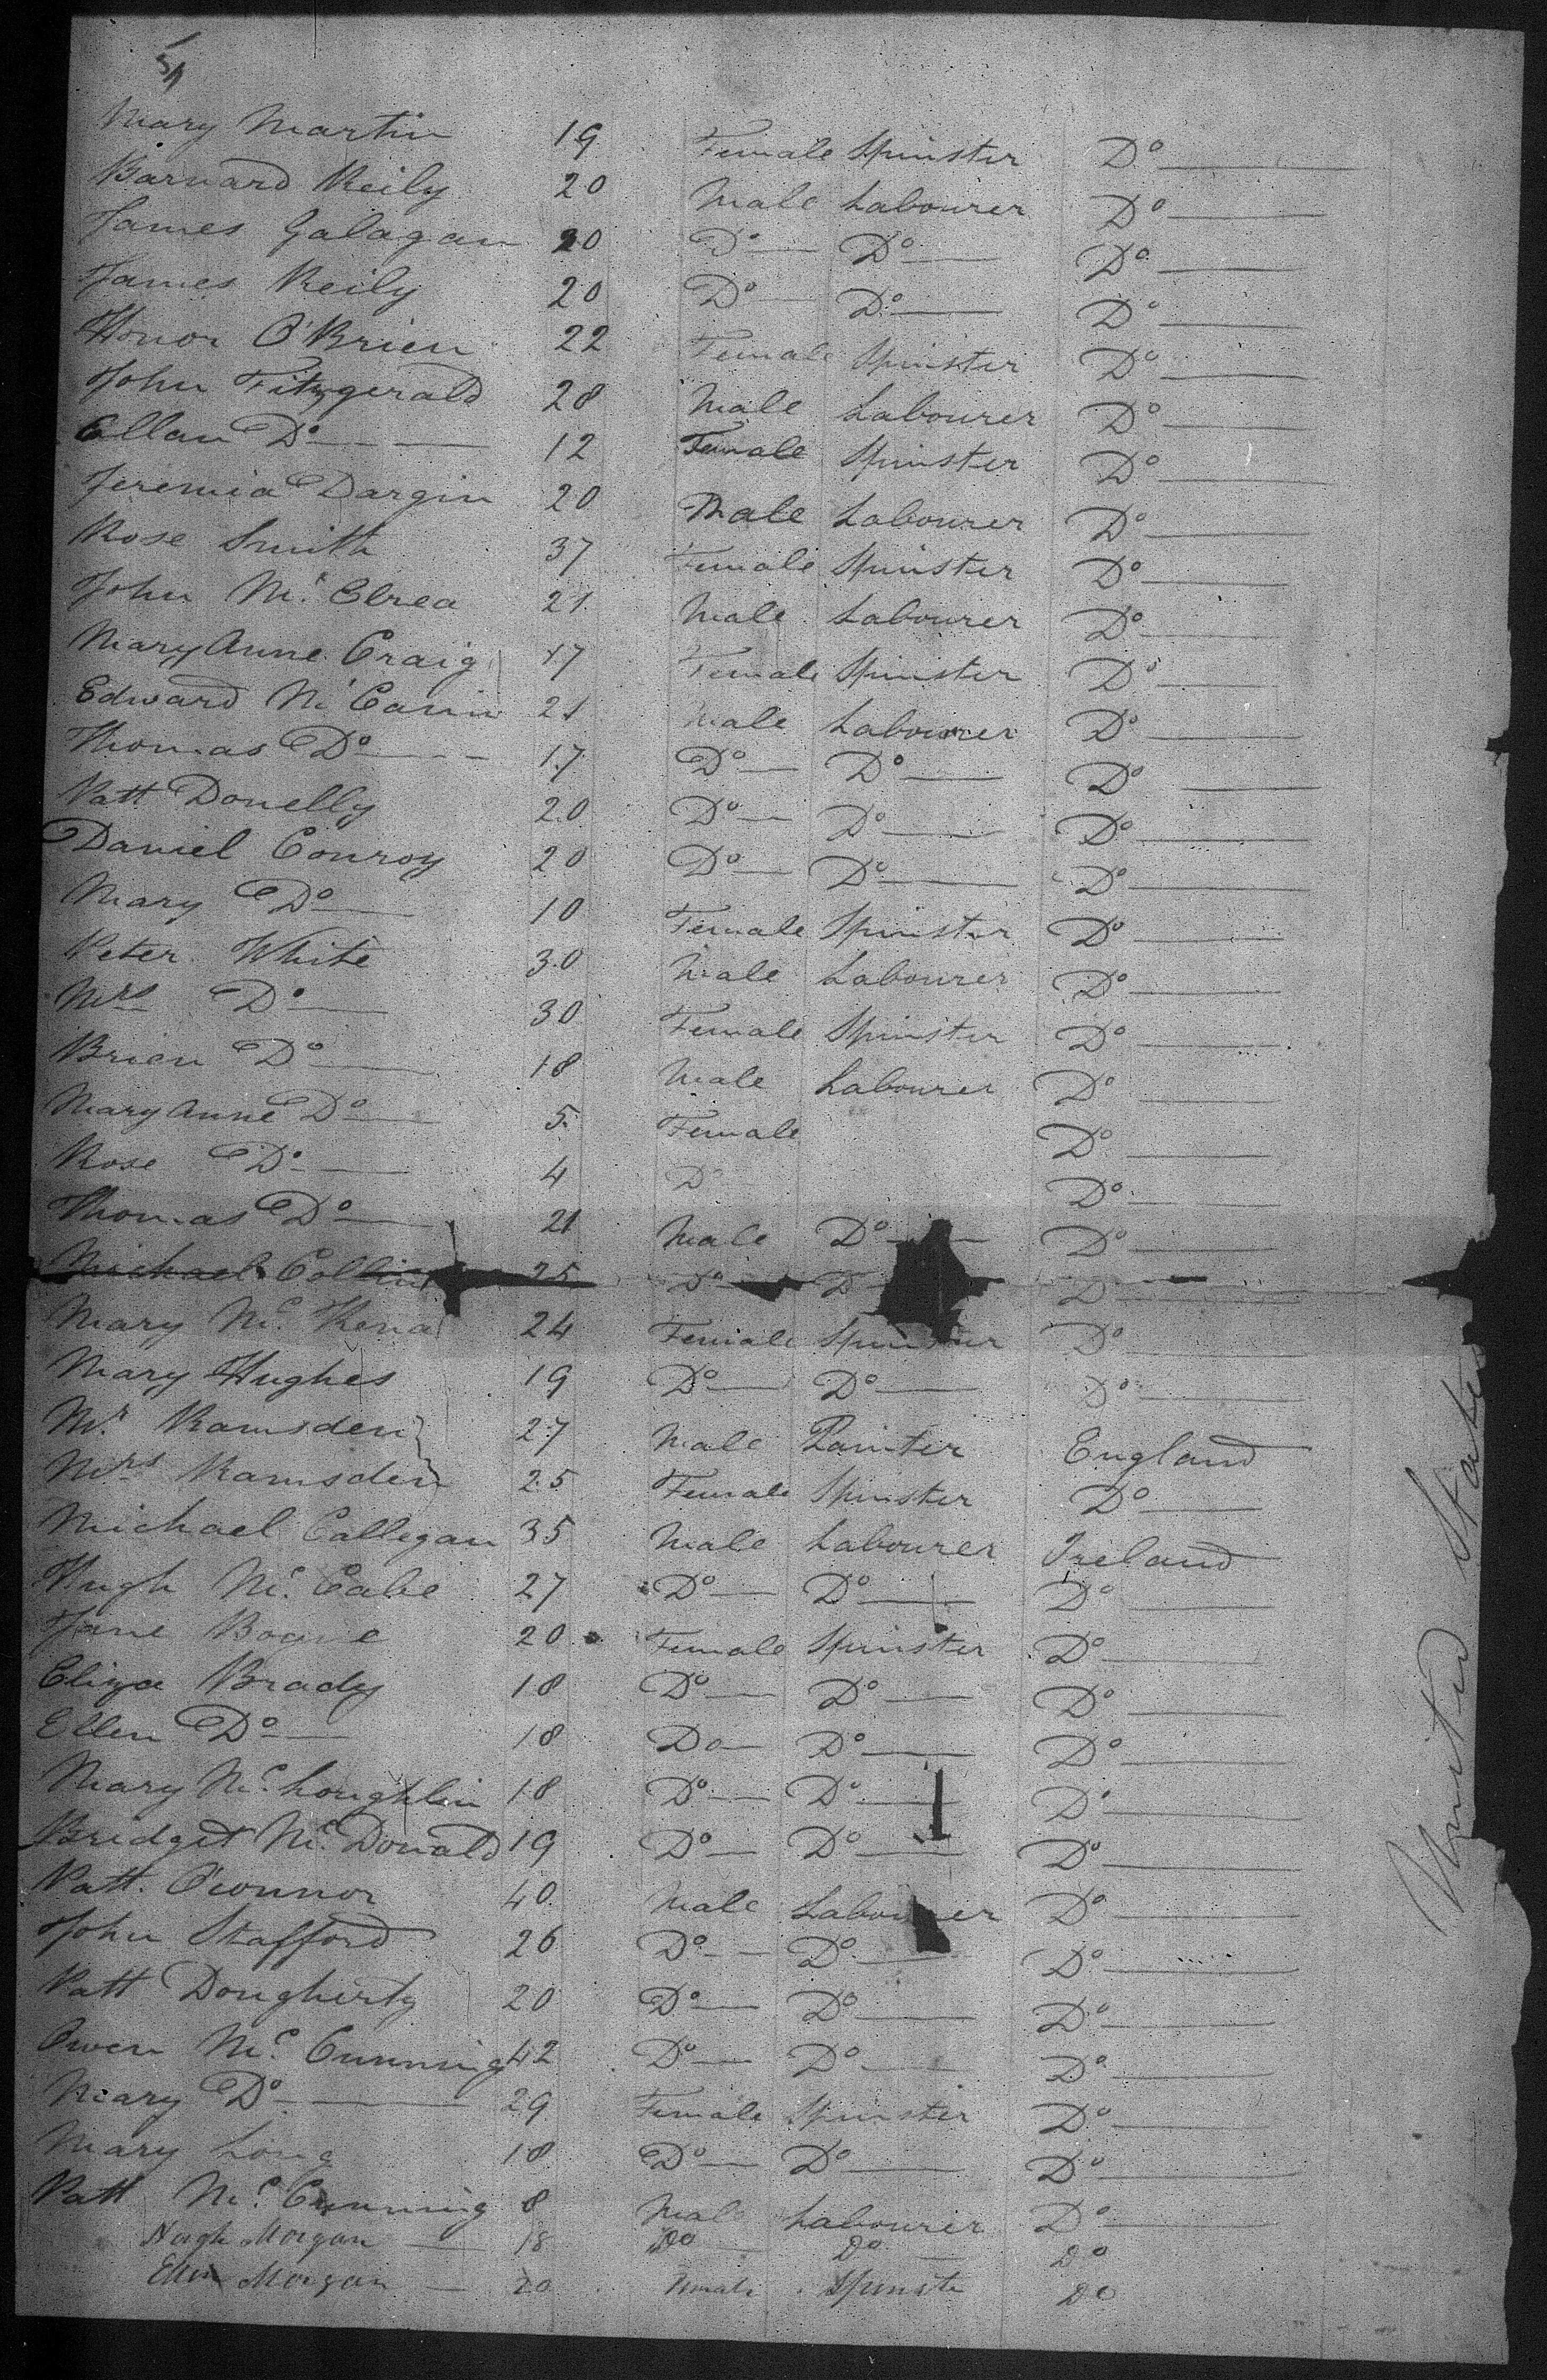 51
Mary Martin 19 Female Spinster Do
Barnard Reily 20 Male Labourer Do
James Galagan 20 Do Do Do
James Reily 20 Do Do Do
Honor O'Brien 22 Female Spinster Do
John Fitzgerald 28 Male Labourer Do
Ellan Do 12 Female Spinster Do
Jeremia Dargin 20 Male Labourer Do
Rose Smith 37 Female Spinster Do
John Mc Elrea 21 Male Labourer Do
Mary Anne Craig 17 Female Spinster Do
Edward Mc Cann 21 Male Labourer Do
Thomas Do 17 Do Do Do
Patt Donelly 20 Do Do Do
Daniel Conroy 20 Do Do Do
Mary Do 10 Female Spinster Do
Peter White 30 Male Labourer Do
Mrs Do 30 Female Spinster Do
Brien Do 18 Male Labourer Do
Mary Anne Do 5 Female Do
Rose Do 4 Do Do
Thomas Do 21 Male Do Do
Michael Collins 25 Do D Do
Mary Mc Kena 24 Female Spinster Do
Mary Hughes 19 Do Do Do
Mr. Ramsden 27 Male Painter England
Mrs Ramsden 25 Female Spinster Do
Michael Callegan 35 Male Labourer Ireland
Hugh Mc Cabe 27 Do Do Do
Jane Bogue 20 Female Spinster Do
Eliza Brady 18 Do Do Do
Ellen Do 18 Do Do Do
Mary Mc Loughlin 18 Do Do Do
Bridget Mc Donald 19 Do Do Do
Patt. O'Connor 40 Male Labourer Do
John Stafford 26 Do Do Do
Patt Dougherty 20 Do Do Do
Owen Mc Cunning 42 Do Do Do
Mary Do 29 Female Spinster Do
Mary Long 18 Do Do Do
Patt Mc Cunning 8 Male Labourer Do
Hugh Morgan 18 Do Do Do
Ellen Morgan 20 Spinste Do
United States